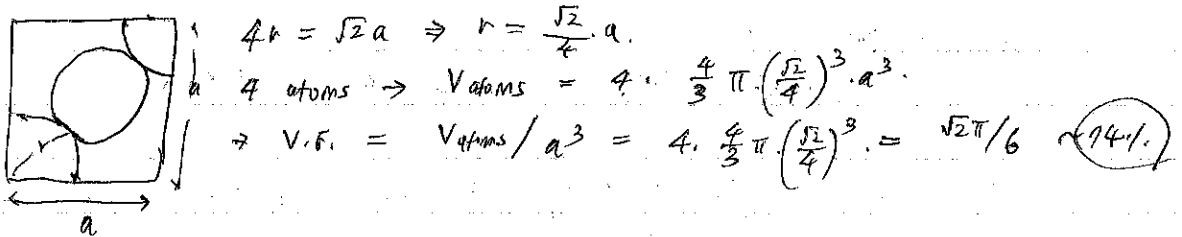 4r = √2 a ⇒ r = √2/4 · a.
4 atoms → Vatoms = 4 · 4/3 π · (√2/4)³ · a³.
→ V.F. = Vatoms / a³ = 4 · 4/3 π · (√2/4)³ · = √2π/6 ~74%
r
a
a